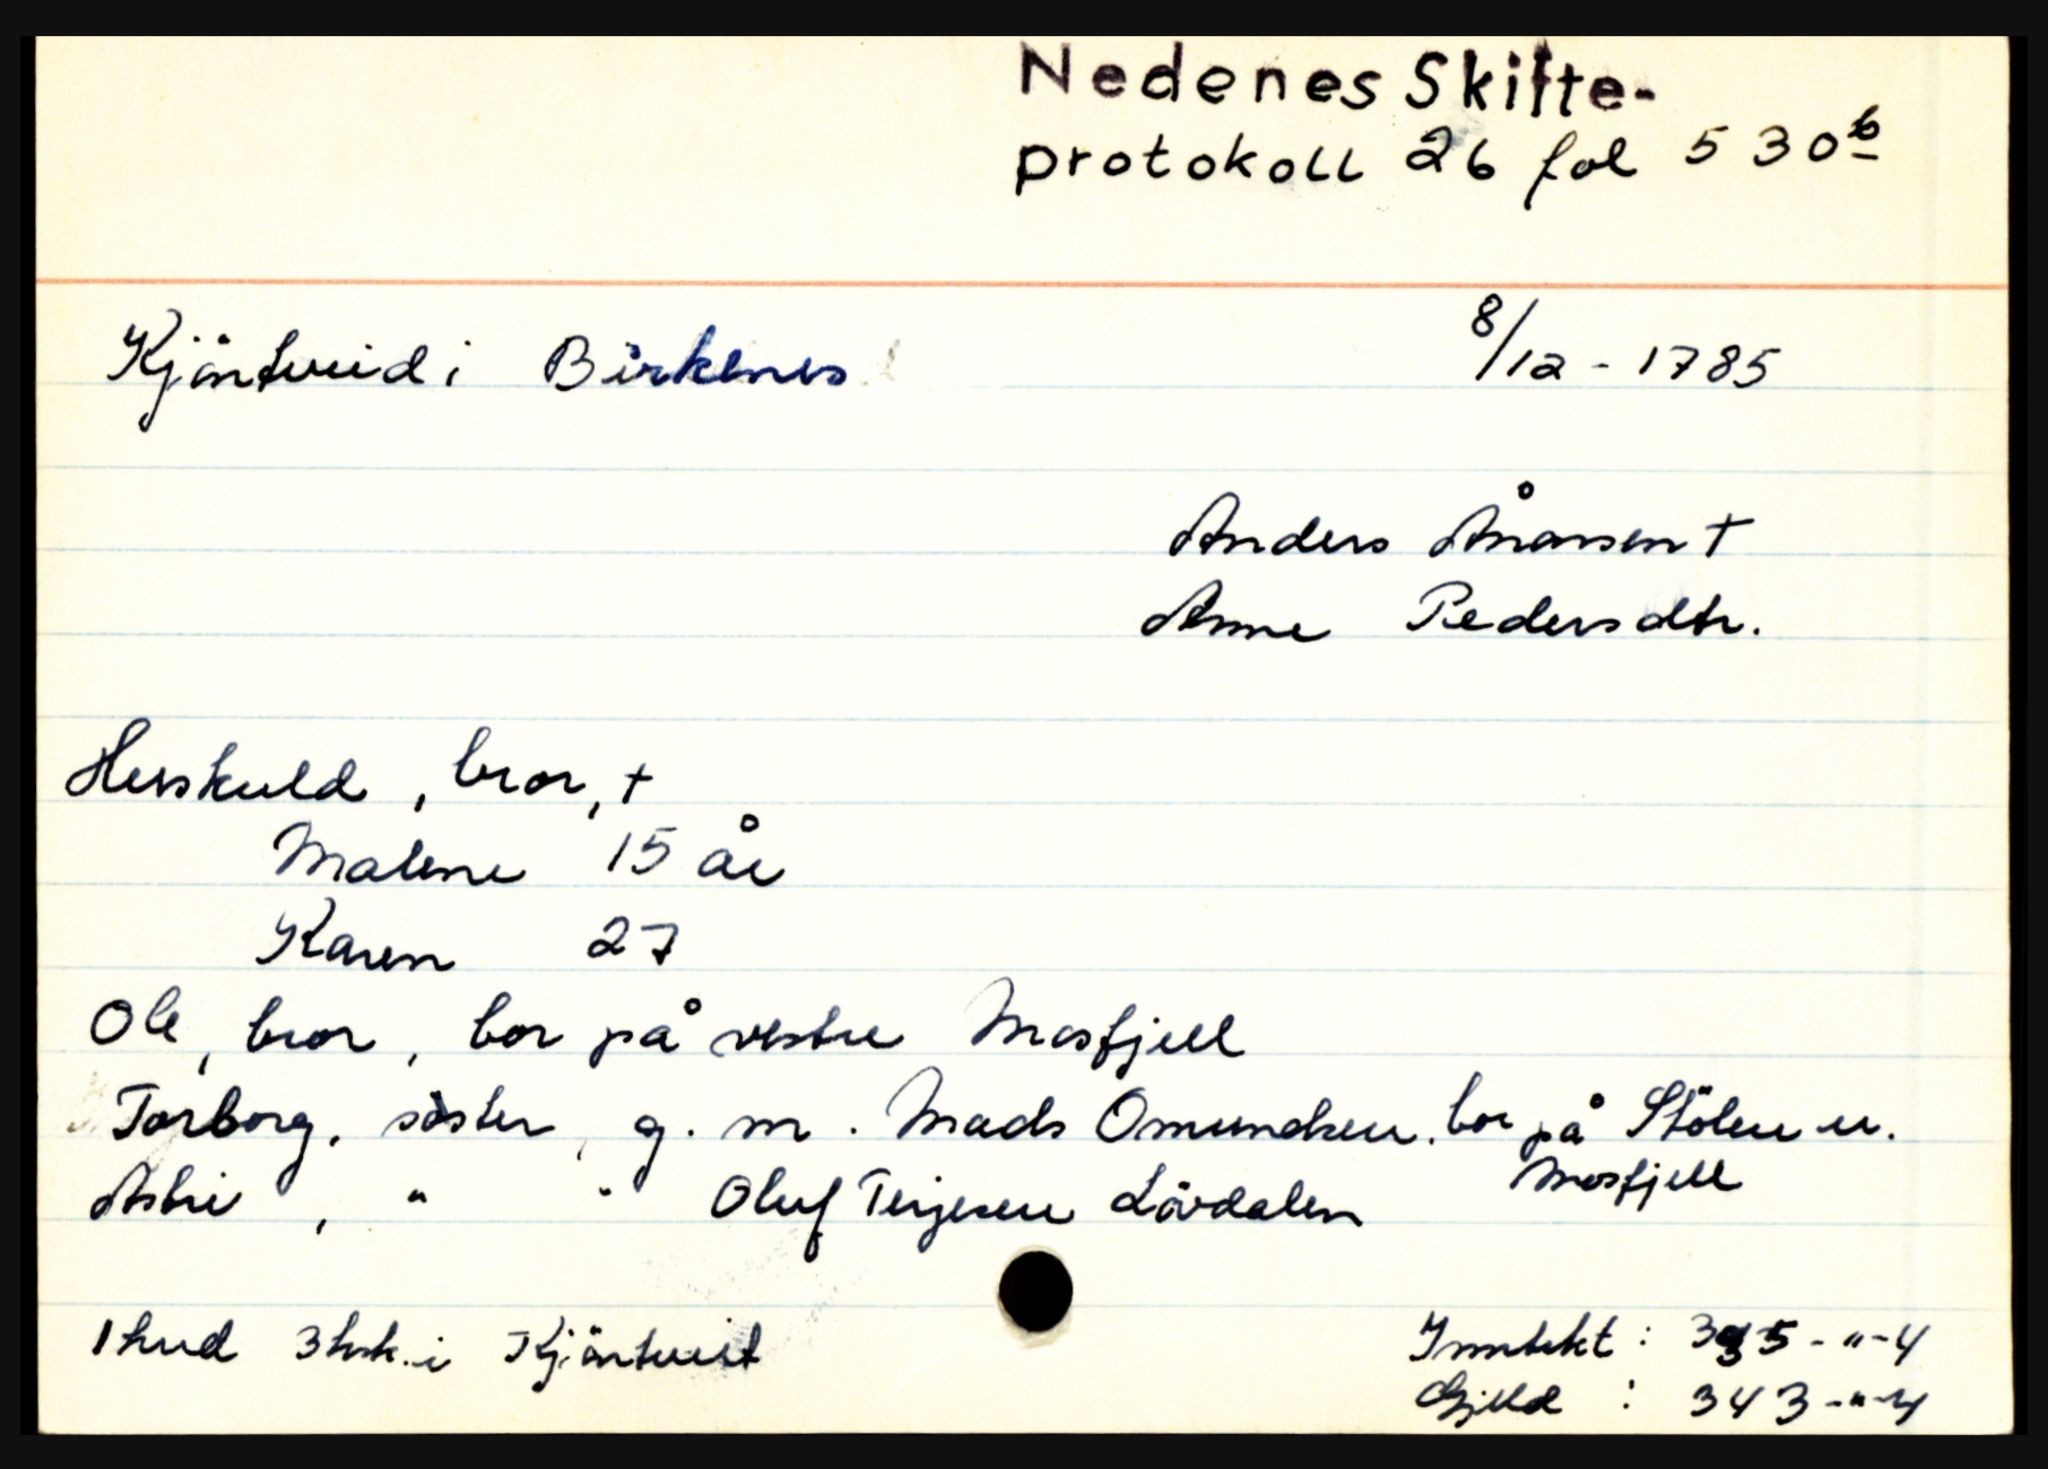 Nedenes Skifte-
protokoll 26 fol 530b
Kjöntveid i Birkenes 8/12 - 1785
Anders Ånarsen †
Anne Pedersdtr.
Herskuld, bror, †
Malene 15 år
Karen 27
Ole, bror, bor på vestre Mosfjell
Torborg, söster, g. m. Mads Omundsen. bor på Stölen u.
Mosfjell
Astri, " " Oluf Terjesen Lövdalen
1 hud 3 ksk. i Kjöntveit
Inntekt: 335-"-4
Gjeld : 343-"-4